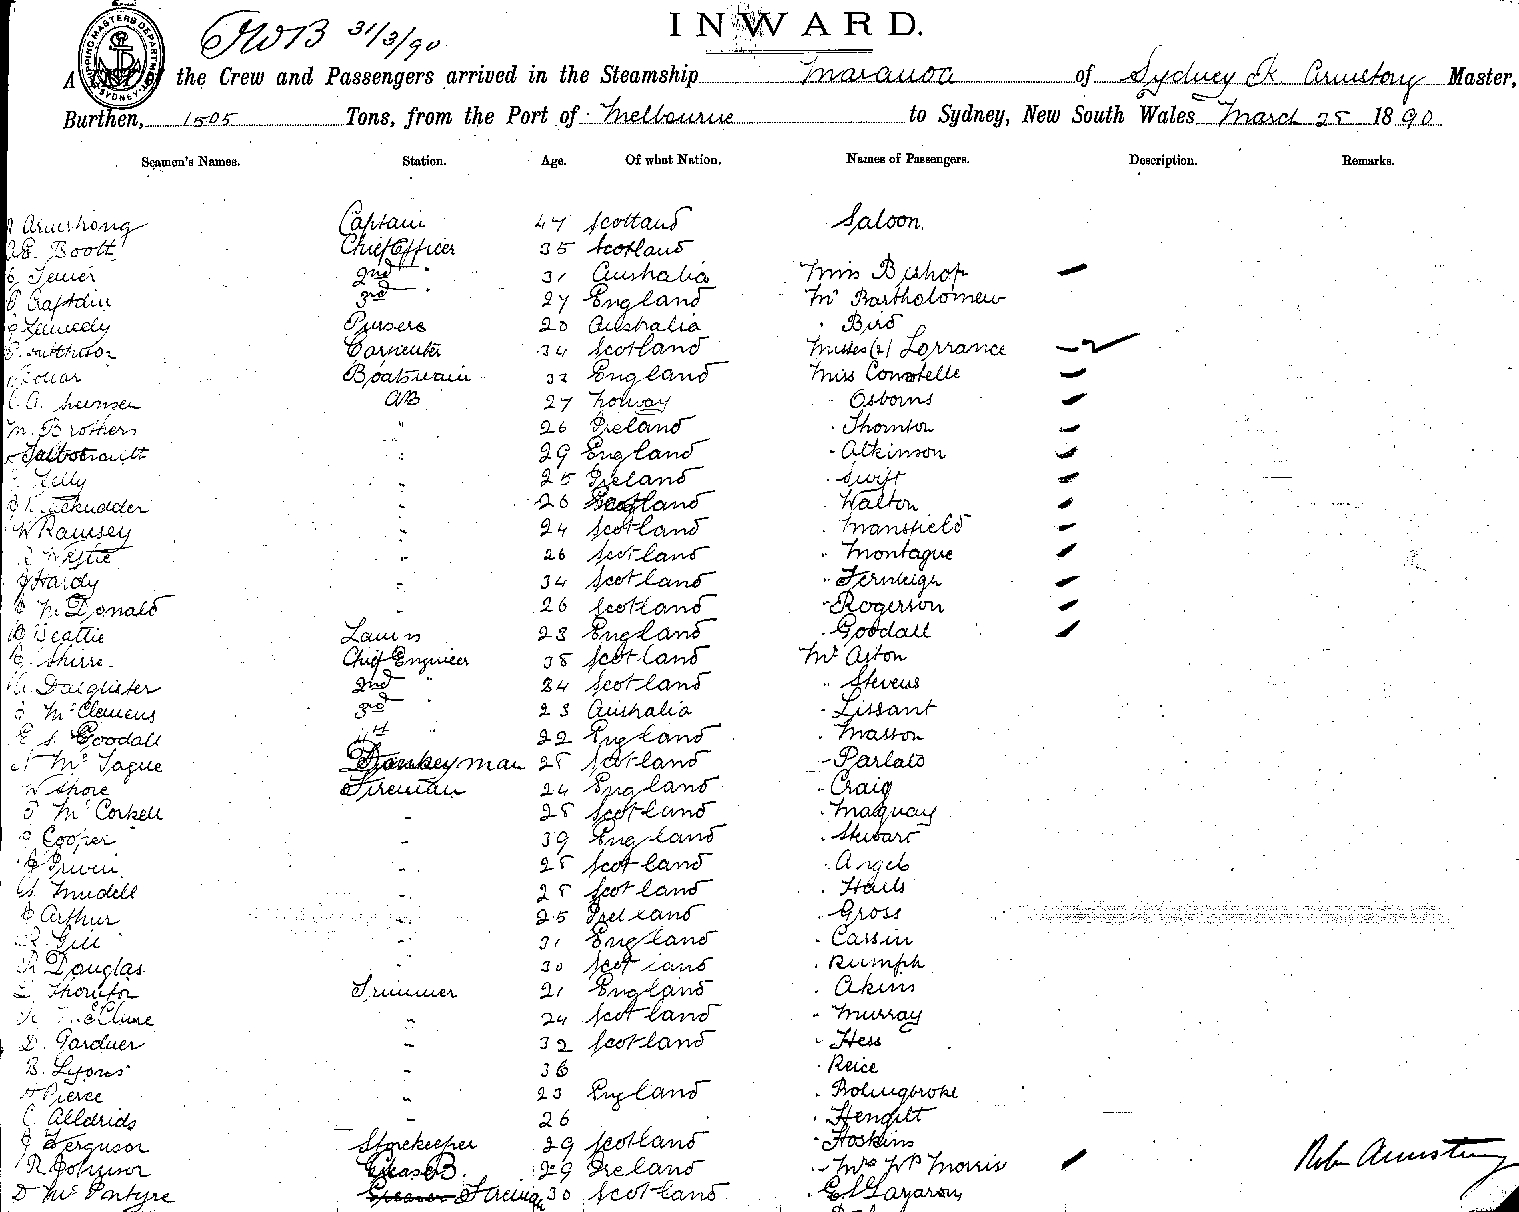 INWARD.
31/3/90
A the Crew and Passengers arrived in the Steamship Maranoa of Sydney R Armstrong Master,
Burthen, 1505 Tons, from the Port of Melbourne to Sydney, New South Wales March 28 1890
Seamen's Names. Station. Age. Of what Nation. Names of Passengers. Description. Remarks.
Armstrong Captain 47 Scotland Saloon.
Boott Chief Officer 35 Scotland
2nd " 31 Australia Miss Bishop
3rd " 27 England Mr Bartholomew
Kennedy Pursers 20 Australia Bird
Carpenter 34 Scotland Misses (2) Lorrance 2
Boatswain 32 England Miss Constelle
AB 27 Norway Osborns
M. Brothers " 26 Ireland Thornton
29 England Atkinson
Kelly " 25 Ireland Swift
26 Scotland Walton
W Ramsey " 24 Scotland Mansfield
26 Scotland Montague
Hardy 34 Scotland Fernleigh
McDonald 26 Scotland Rogerson
Beattie 23 England Goodall
Shirre Chief Engineer 38 Scotland Mr Aston
Dalglister 2nd " 24 Scotland Stevens
McClemens 3rd " 23 Australia Lissant
E S. Goodall 4th " 22 England Masson
McTague Donkeyman 28 Scotland Parlato
W Shore Fireman 24 England Craig
McCorkell 28 Scotland Maquay
Cooper 39 England Stewart
Irwin 28 Scotland Angelo
Mudell 28 Scotland Hails
Arthur 25 Ireland Gross
R. Gill 31 England Cassin
R Douglas 30 Scotland Rumph
Thornton Trimmer 21 England Akins
McClure 24 Scotland Murray
D. Gardner 32 Scotland Hess
B. Lyons 36 Reice
Pierce 23 England Bolingbroke
C Alldrids 26 Hengitt
J Ferguson Storekeeper 29 Scotland Hoskins
R Johnson Greaser 29 Ireland Mrs WP Morris
D McIntyre Fireman 30 Scotland E S Lazarow
Robt Armstrong